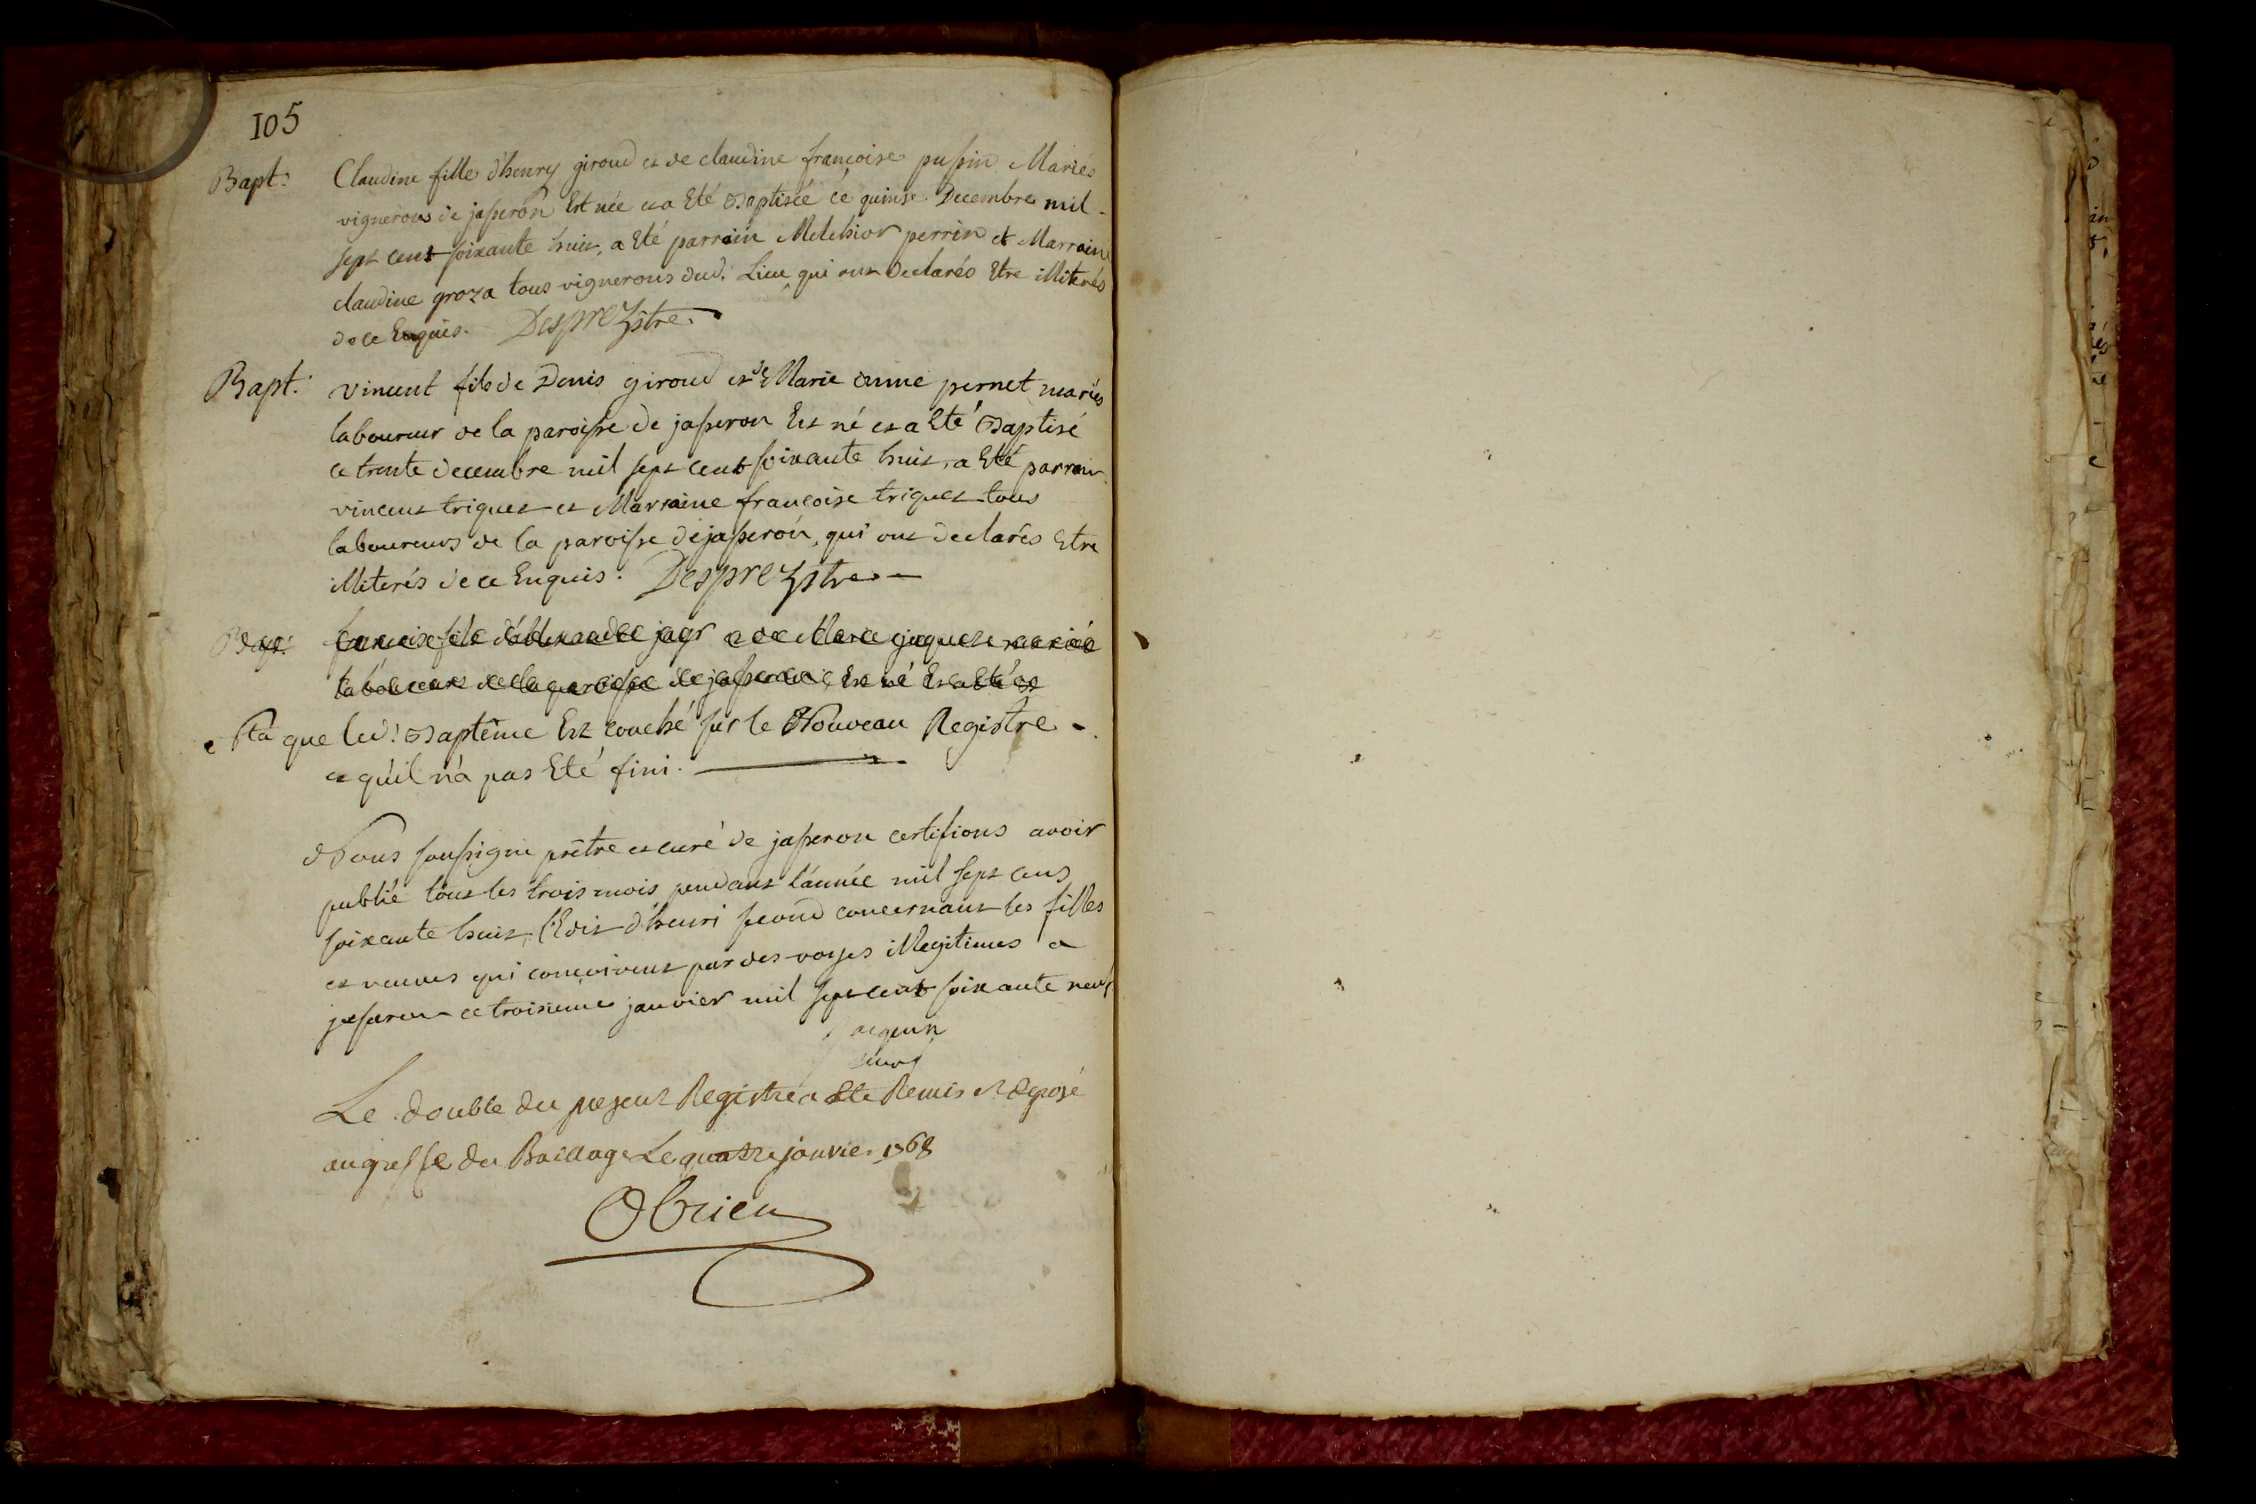 105
Bapt: Claudine fille d'henry giroud et de claudine françoise pussin Mariés
vignerons de jasseron Est née et a Eté Baptisée ce quinse Decembre mil
sept cent soixante huit, a Eté parrain Melchior perrin et Marraine
claudine groza tous vignerons dud: Lieu qui ont Declarés Etre illiterés
de ce Enquis. Desprez ptre
Bapt: vincent fils de Denis giroud et de Marie anne pernet mariés
laboureur de la paroisse de jasseron Est né et a Eté Baptisé
ce trente decembre mil sept cent soixante huit, a Eté parrain
vincent triquet et Marraine françoise triquet tous
laboureurs de la paroisse de jasseron, qui ont declarés Etre
illiterés de ce Enquis. Desprez ptre
Bapt: françois fils d'allexandre jayr et de Marie jaquet mariés
laboureurs de la paroisse de jasseron, Est né Et a Eté
Nta que led: Baptême Est couché sur le Nouveau Registre
et qu'il n'a pas Eté fini.
Nous soussigné prêtre et curé de jasseron certifions avoir
publié tout les trois mois pendant l'année mil sept cens
soixante huit, l'Edit d'henri second concernant les filles
et veuves qui conçoivent par des voyes illegitimes a
jasseron ce troisieme janvier mil sept cent soixante neuf
Le double du present Registre a Ete Remis et deposé
au greffe du Baillage Le quatre janvier 1768
OBrien